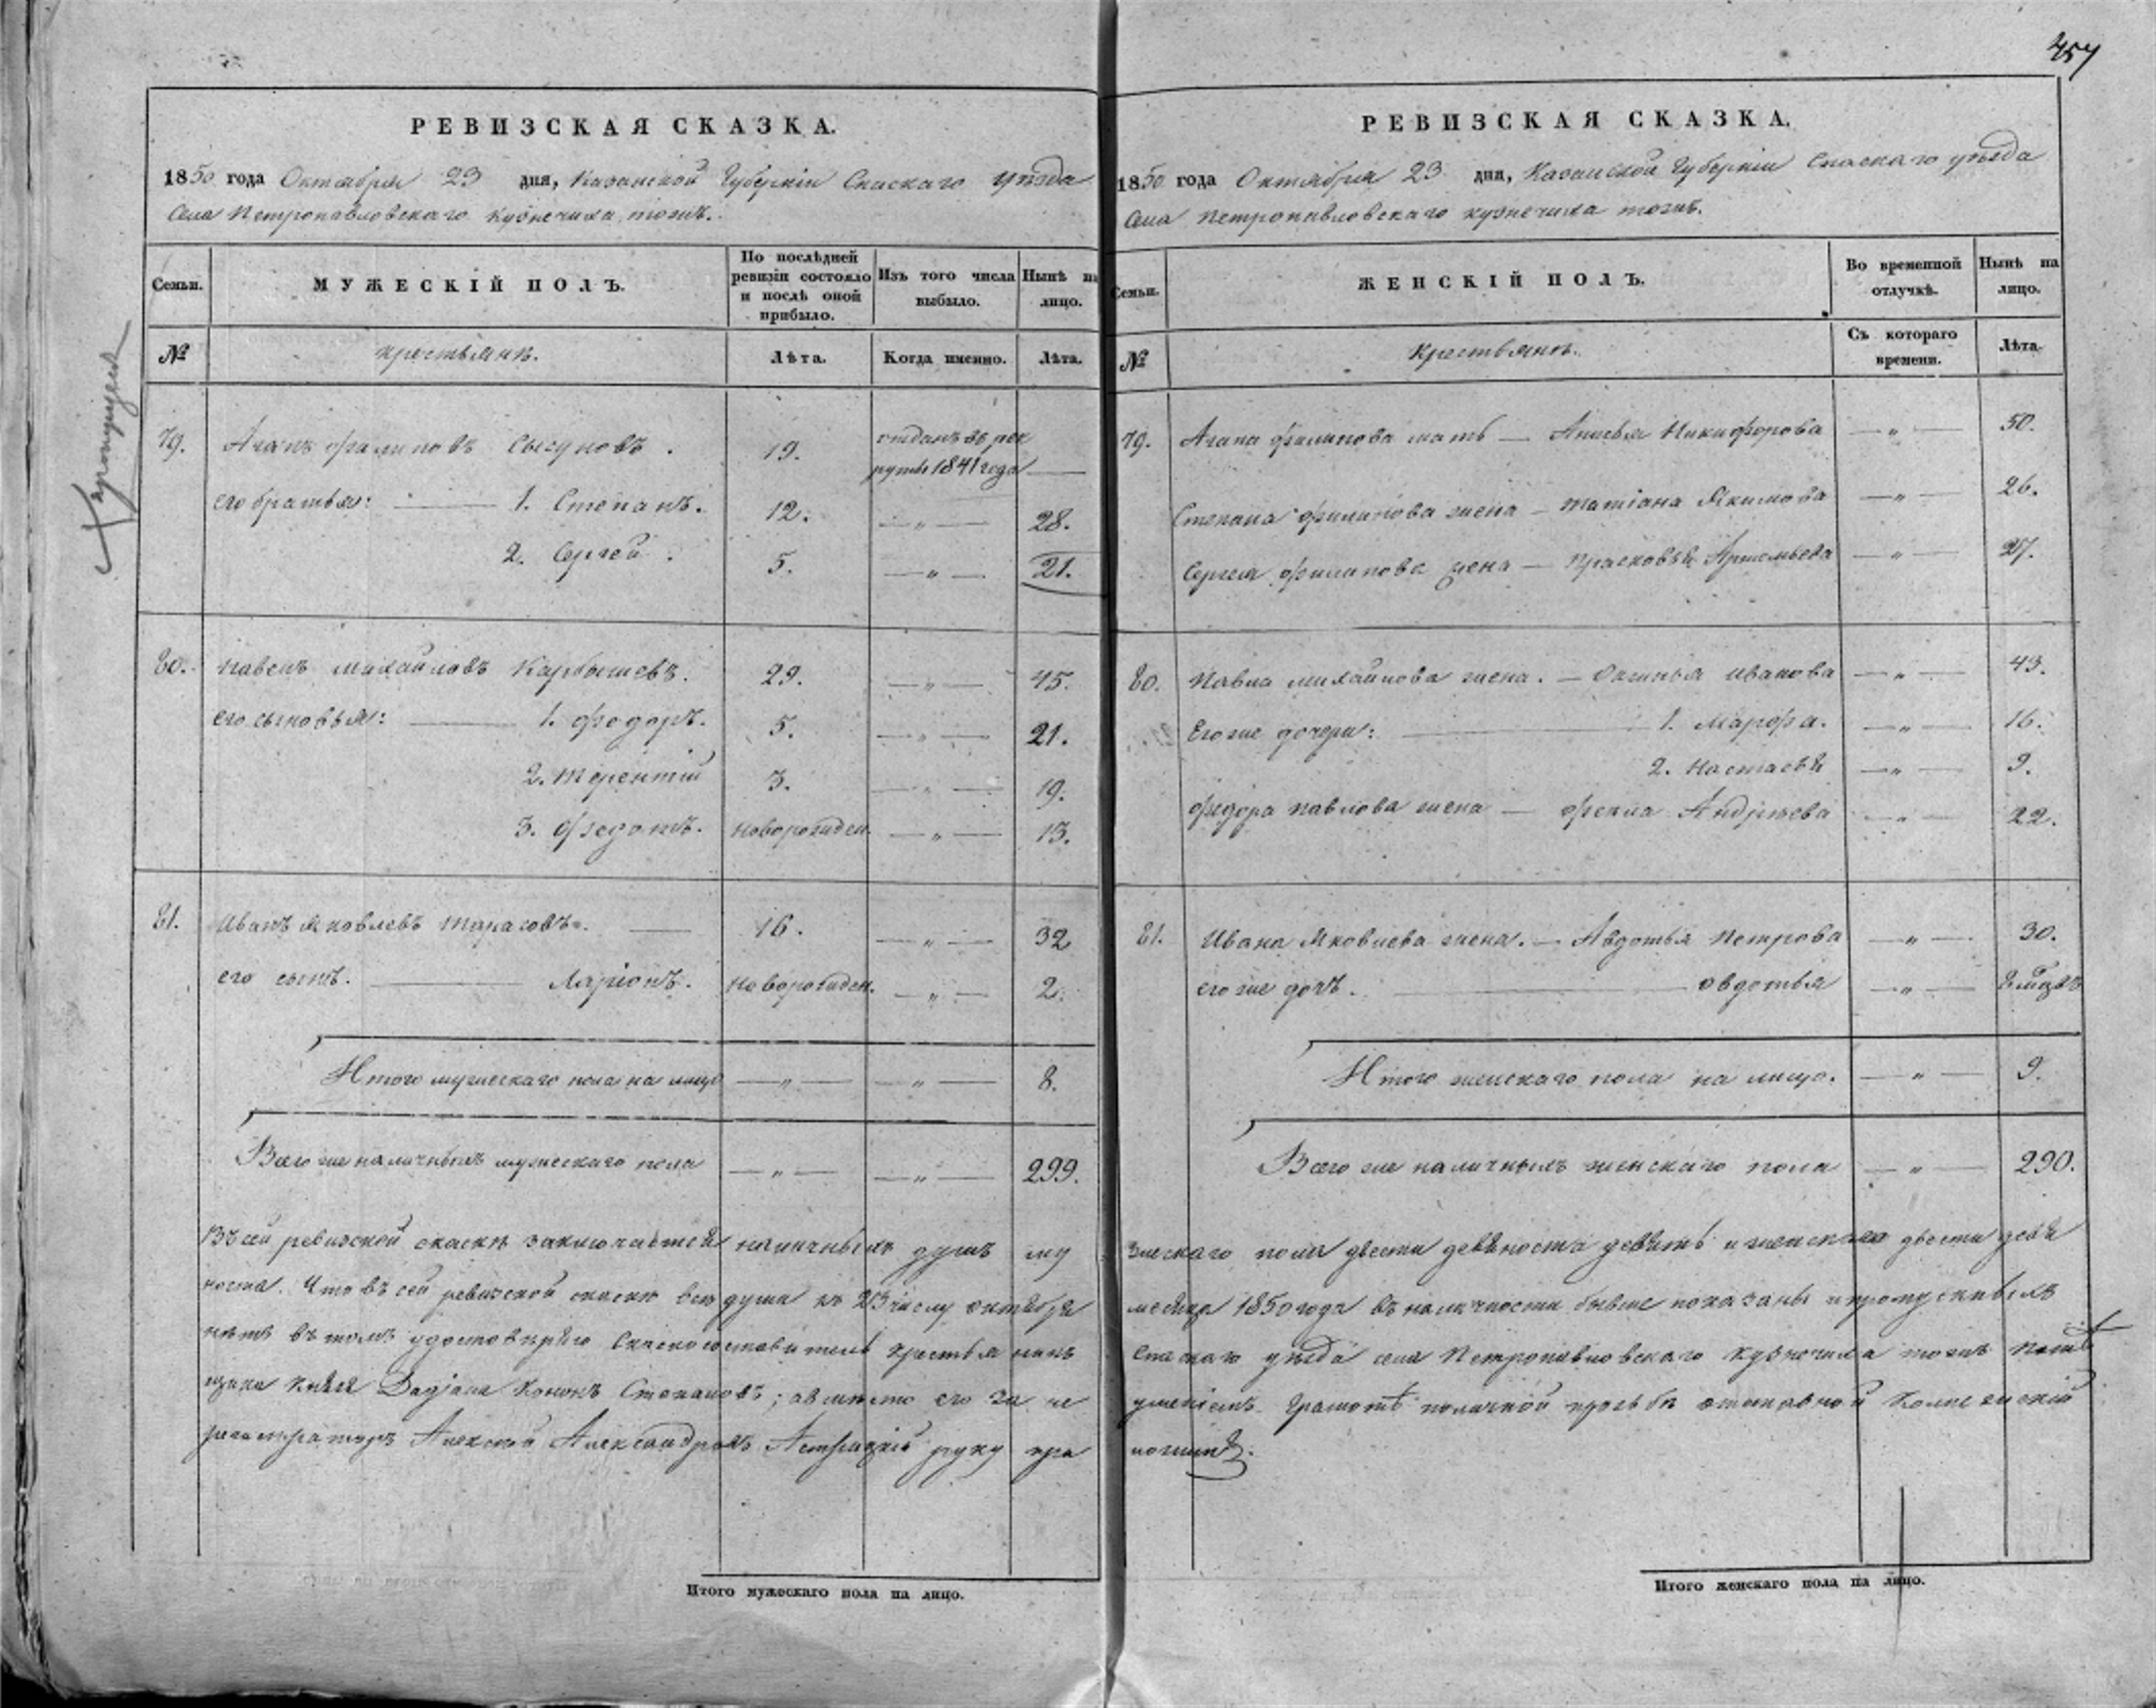 457
РЕВИЗСКАЯ СКАЗКА.
1850 года Октября 23 дня, Казанской Губерніи Спаскаго уѣзда
Села Петропавловскаго Кузнечиха тожъ.
Семьи.
МУЖЕСКІЙ ПОЛЪ.
По послѣдней ревизіи состояло и послѣ оной прибыло.
Изъ того числа выбыло.
Нынѣ на лицо.
№
Крестьянъ.
Лѣта.
Когда именно.
Лѣта.
79. Агапъ Филиповъ Сысуновъ. 19. отданъ въ рек
руты 1841 года —
его братья: — 1. Степанъ. 12. —„— 28.
2. Сергей. 5. —„— 21.
80. Павелъ Михайловъ Карбышевъ. 29. —„— 45.
его сыновья: — 1. Федоръ. 5. —„— 21.
2. Терентій 3. —„— 19.
3. Федотъ. новорожден. —„— 13.
81. Иванъ Яковлевъ Тарасовъ. — 16. —„— 32
его сынъ. — Ларіонъ. новорожден. —„— 2.
Итого мужескаго пола на лицо —„— —„— 8.
Всего же наличныхъ мужескаго пола —„— —„— 299.
РЕВИЗСКАЯ СКАЗКА.
1850 года Октября 23 дня, Казанской Губерніи Спаскаго уѣзда
Села Петропавловскаго Кузнечиха тожъ.
Семьи.
ЖЕНСКІЙ ПОЛЪ.
Во временной отлучкѣ.
Нынѣ на лицо.
№
Крестьянъ.
Съ котораго времени.
Лѣта.
79. Агапа Филипова мать — Анисья Никифорова —„— 50.
Степана Филипова жена — Татіана Якимова —„— 26.
Сергея Филипова жена — Прасковья Артемьева —„— 27.
80. Павла Михайлова жена. — Иванова —„— 43.
Его же дочери: — 1. Марфа. —„— 16.
2. Настасья —„— 9.
Федора Павлова жена — Фекла Андреева —„— 22.
81. Ивана Яковлева жена. — Авдотья Петрова —„— 30.
его же дочь. — Овдотья —„— 8 мѣсц
Итого женскаго пола на лицо. —„— 9.
Всего же наличныхъ женскаго пола —„— 290.
Въ сей ревизской скаскѣ заключается наличныхъ душъ му жескаго пола двести девяноста девять и женскаго двести девя
носта. Что въ сей ревизской скаске все души къ 23 числу октября месяца 1850 года въ наличности бывше показаны и пропускныхъ
нетъ въ томъ удостоверяю Спаскаго уезда села Петропавловскаго Кузнечиха тожъ
щика Князя Дадіана Кононъ Степановъ; а вместо его за не уменіемъ грамоте по личной прозьбе отставной Колежскій
регистраторъ Алексей Александровъ руку при ложилъ.
Итого мужескаго пола на лицо.
Итого женскаго пола на лицо.